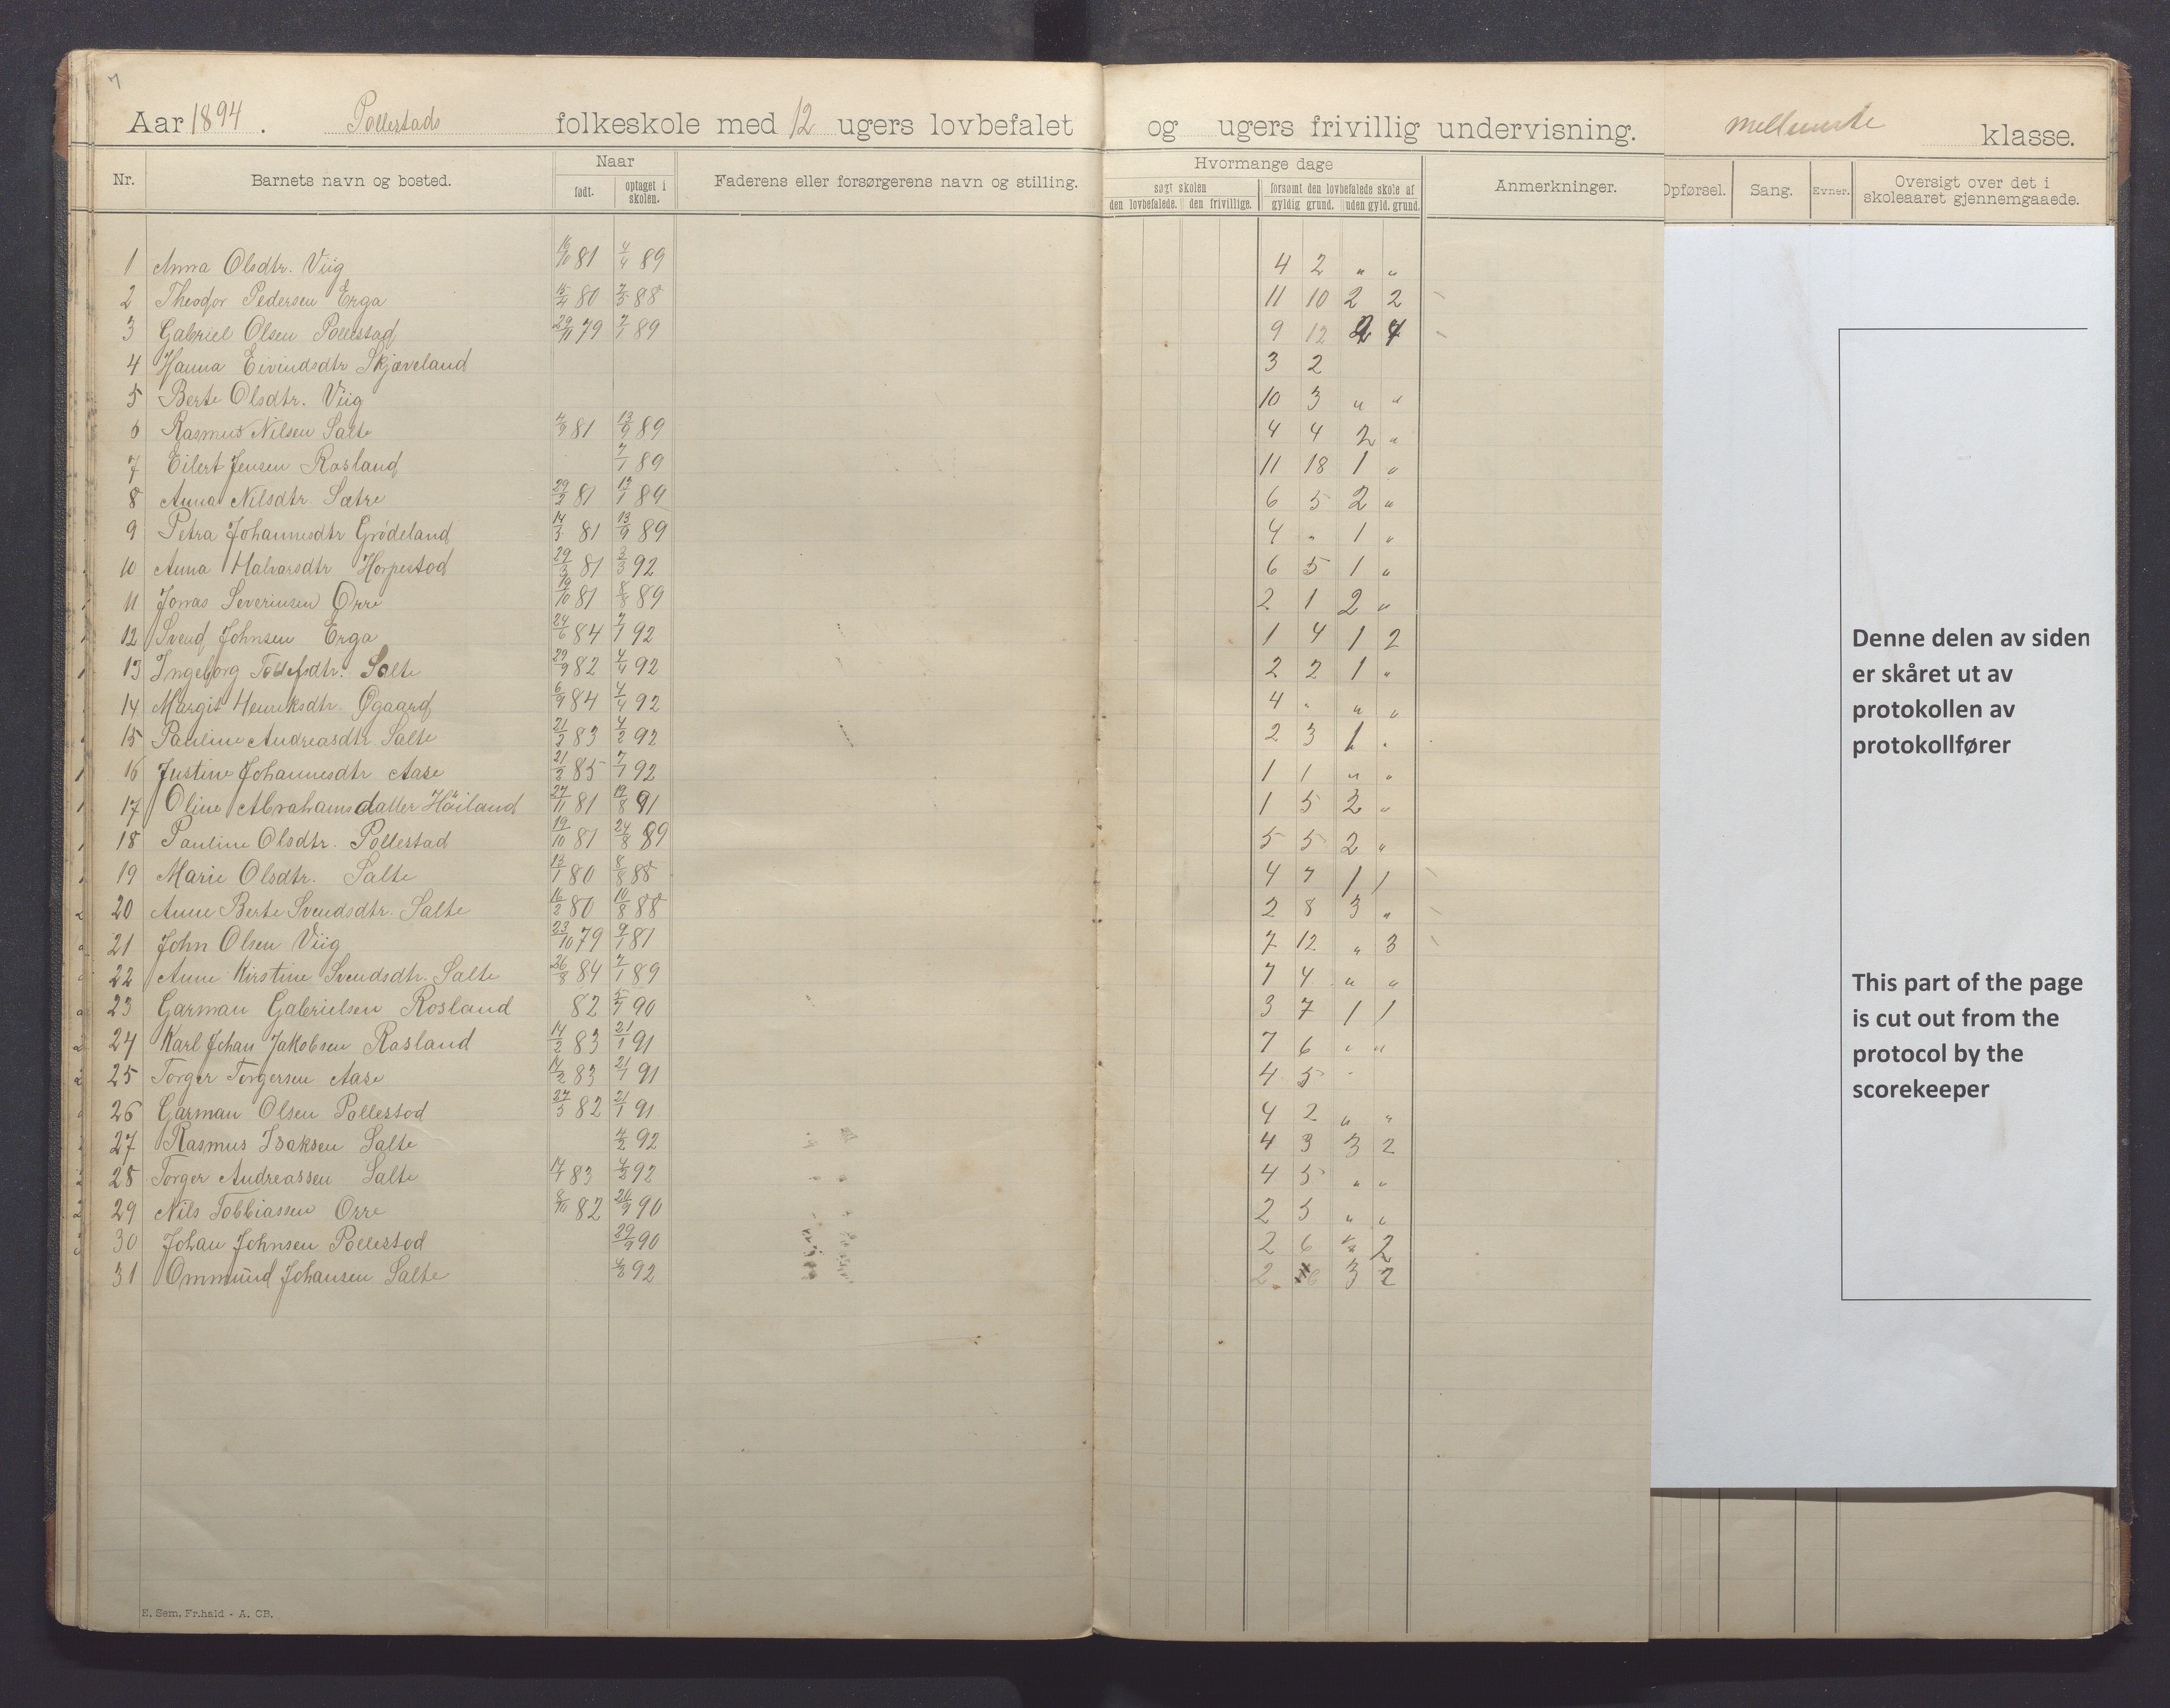 Aar 1894. Pollestads folkeskole med 12 ugers lovbefalet og ugers frivillig undervisning. mellemste klasse.
Nr. Barnets navn og bosted. Naar født. optaget i skolen. Faderens eller forsørgerens navn og stilling. Hvormange dage søgt skolen den lovbefalede. den frivillige. forsømt den lovbefalede skole af gyldig grund. uden gyld. grund. Anmerkninger. Opførsel. Sang. Evner. Oversigt over det i skoleaaret gjennemgaaede.
1 Anna Olsdtr. Viig 81 4/4 89 4 2 " "
2 Theodor Pedersen Erga 15/4 80 88 11 10 2 2
3 Gabriel Olsen Pollestad 29/11 79 7/1 89 9 12
4 Hanna Eivindsdtr Skjæveland 3 2
5 Berte Olsdtr. Viig 10 3 " "
6 Rasmus Nilsen Salte 81 13/9 89 4 4 2 "
7 Eilert Jensen Rosland 7/1 89 11 18 1 "
8 Anna Nilsdtr. Sætre 81 89 6 5 2 "
9 Petra Johannesdtr Grødeland 14/3 81 13/9 89 4 " 1 "
10 Anna Halvarsdtr Horpestad 29/3 81 92 6 5 1 "
11 Jonas Severinsen Orre 19/10 81 8/8 89 2 1 2 "
12 Svend Johnsen Erga 24/6 84 7/1 92 1 4 1 2
13 Ingeborg Tollefsdtr. Salte 29/9 82 4/4 92 2 2 1 "
14 Margit Henriksdtr. Øgaard 6/9 84 4/4 92 4 " " "
15 Pauline Andreasdtr Salte 83 4/2 92 2 3 1 "
16 Justine Johannesdtr Aase 85 7/1 92 1 1 " "
17 Oline Abrahamsdatter Höiland 27/11 81 19/8 91 1 5 2 "
18 Pauline Olsdtr. Pollestad 19/10 81 24/8 89 5 5 2 "
19 Marie Olsdtr. Salte 13/1 80 8/8 88 4 7 1 1
20 Anne Berte Svendsdtr. Salte 16/2 80 10/8 88 2 8 3 "
21 John Olsen Viig 23/10 79 9/1 81 7 12 " 3
22 Anne Kirstine Svendsdtr. Salte 26/8 84 7/1 89 7 4 " "
23 Garman Gabrielsen Rosland 82 90 3 7 1 1
24 Karl Johan Jakobsen Rosland 14/2 83 21/1 91 7 6 " "
25 Torger Torgersen Aase 14/2 83 21/1 91 4 5 "
26 Garman Olsen Pollestad 82 21/1 91 4 2 " "
27 Rasmus Isaksen Salte 4/2 92 4 3 3 2
28 Torger Andreassen Salte 83 4/2 92 4 5 " "
29 Nils Tobbiassen Orre 82 90 2 5 " "
30 Johan Johnsen Pollestad 29/9 90 2 6 2
31 Ommund Johansen Salte 92 2 6 3 2
E. Sem, Fr.hald - A. CB.
Denne delen av siden
er skåret ut av
protokollen av
protokollfører
This part of the page
is cut out from the
protocol by the
scorekeeper